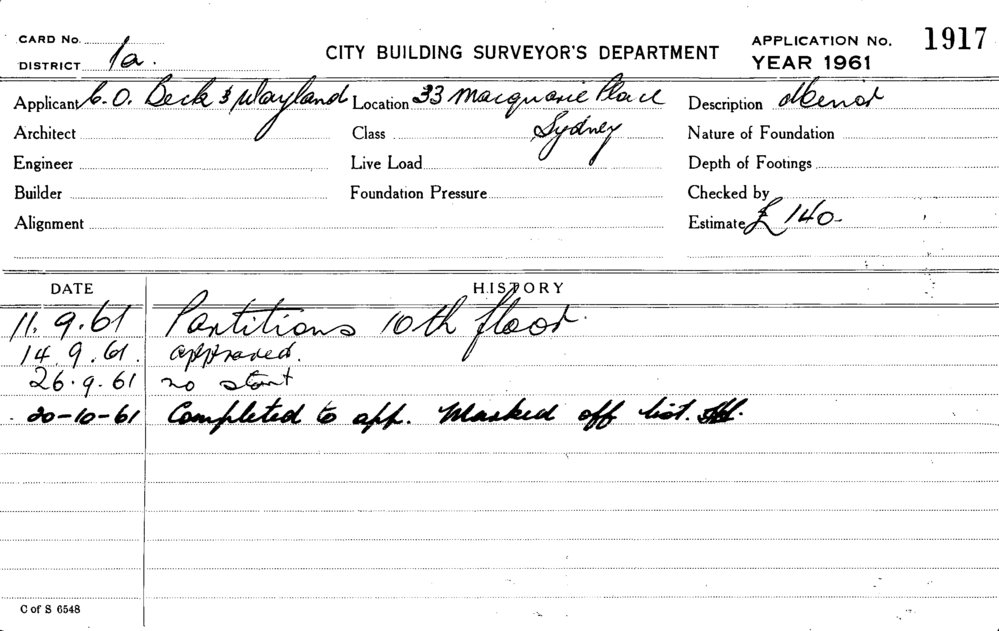 CARD No.
DISTRICT 1a.
CITY BUILDING SURVEYOR'S DEPARTMENT
APPLICATION No. 1917
YEAR 1961
Applicant C.O. Beck & Wayland Location 33 Macquarie Place Description Minor
Architect Class Sydney Nature of Foundation
Engineer Live Load Depth of Footings
Builder Foundation Pressure Checked by
Alignment Estimate £ 140-
DATE HISTORY
11.9.61 Partitions 10th floor.
14.9.61. approved.
26.9.61 no start
20-10-61 Completed to app. Marked off list.
C of S 6548